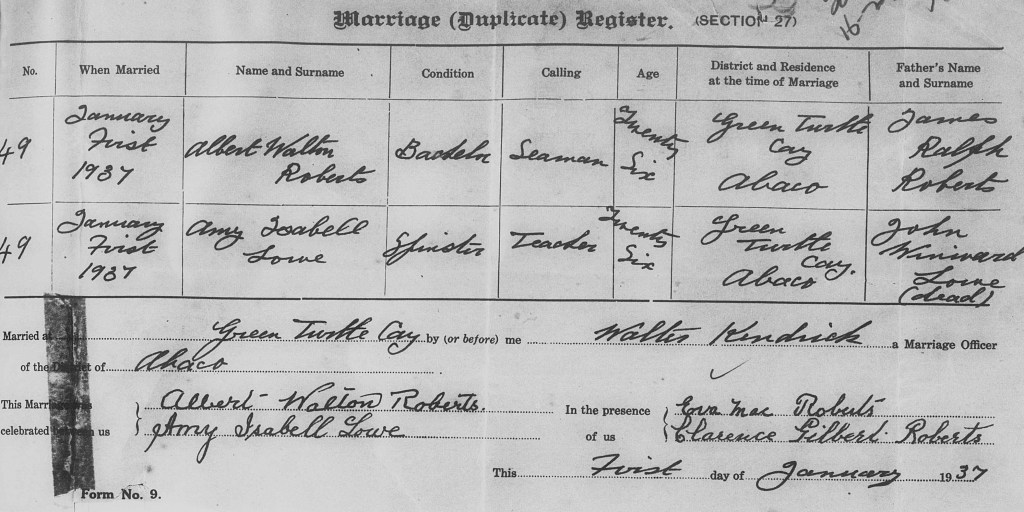 Marriage (Duplicate) Register. (SECTION 27)
No. When Married Name and Surname Condition Calling Age District and Residence at the time of Marriage Father's Name and Surname
49 January First 1937 Albert Walton Roberts Bachelor Seaman Twenty Six Green Turtle Cay Abaco James Ralph Roberts
49 January First 1937 Amy Isabell Lowe Spinster Teacher Twenty Six Green Turtle Cay. Abaco John Winward Lowe (dead)
Married at Green Turtle Cay by (or before) me Walter Kendrick a Marriage Officer
of the District of Abaco
This Marriage was Albert Walton Roberts. In the presence Eva Mae Roberts
celebrated between us Amy Isabell Lowe of us Clarence Gilbert Roberts
This First day of January 1937
Form No. 9.